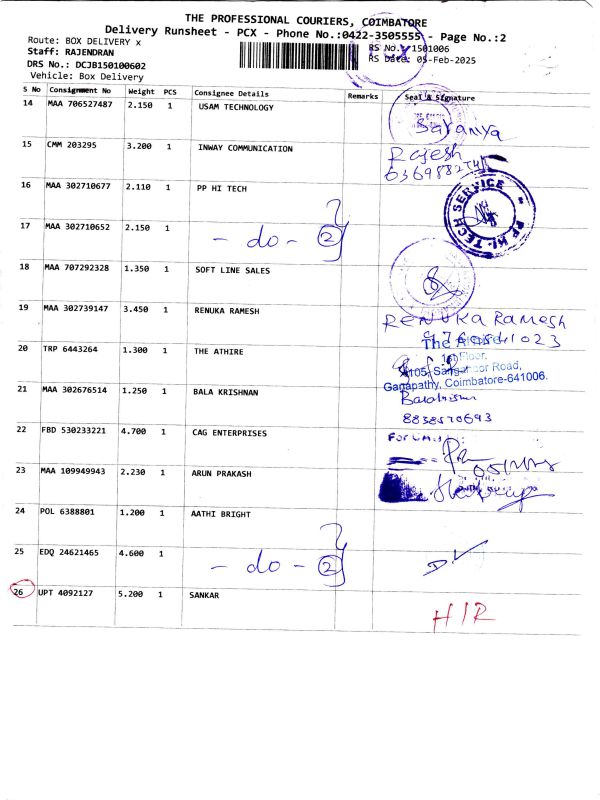 THE PROFESSIONAL COURIERS, COIMBATORE
Delivery Runsheet - PCX - Phone No.:0422-3505555 - Page No.:2
Route: BOX DELIVERY x
RS No.: 1501006
Staff: RAJENDRAN
RS Date: 05-Feb-2025
DRS No.: DCJB150100602
Vehicle: Box Delivery
S No Consignment No Weight PCS Consignee Details Remarks Seal & Signature
14 MAA 706527487 2.150 1 USAM TECHNOLOGY
Saranya
15 CMM 203295 3.200 1 INWAY COMMUNICATION
Rajesh
16 MAA 302710677 2.110 1 PP HI TECH
PP HI-TECH SERVICE
17 MAA 302710652 2.150 1 - do - 2
18 MAA 707292328 1.350 1 SOFT LINE SALES
19 MAA 302739147 3.450 1 RENUKA RAMESH
RENUKA RAMESH
20 TRP 6443264 1.300 1 THE ATHIRE
1st Floor,
Road,
Ganapathy, Coimbatore-641006.
21 MAA 302676514 1.250 1 BALA KRISHNAN
8838570693
22 FBD 530233221 4.700 1 CAG ENTERPRISES
23 MAA 109949943 2.230 1 ARUN PRAKASH
24 POL 6388801 1.200 1 AATHI BRIGHT
25 EDQ 24621465 4.600 1 - do - 2
26 UPT 4092127 5.200 1 SANKAR
HIR